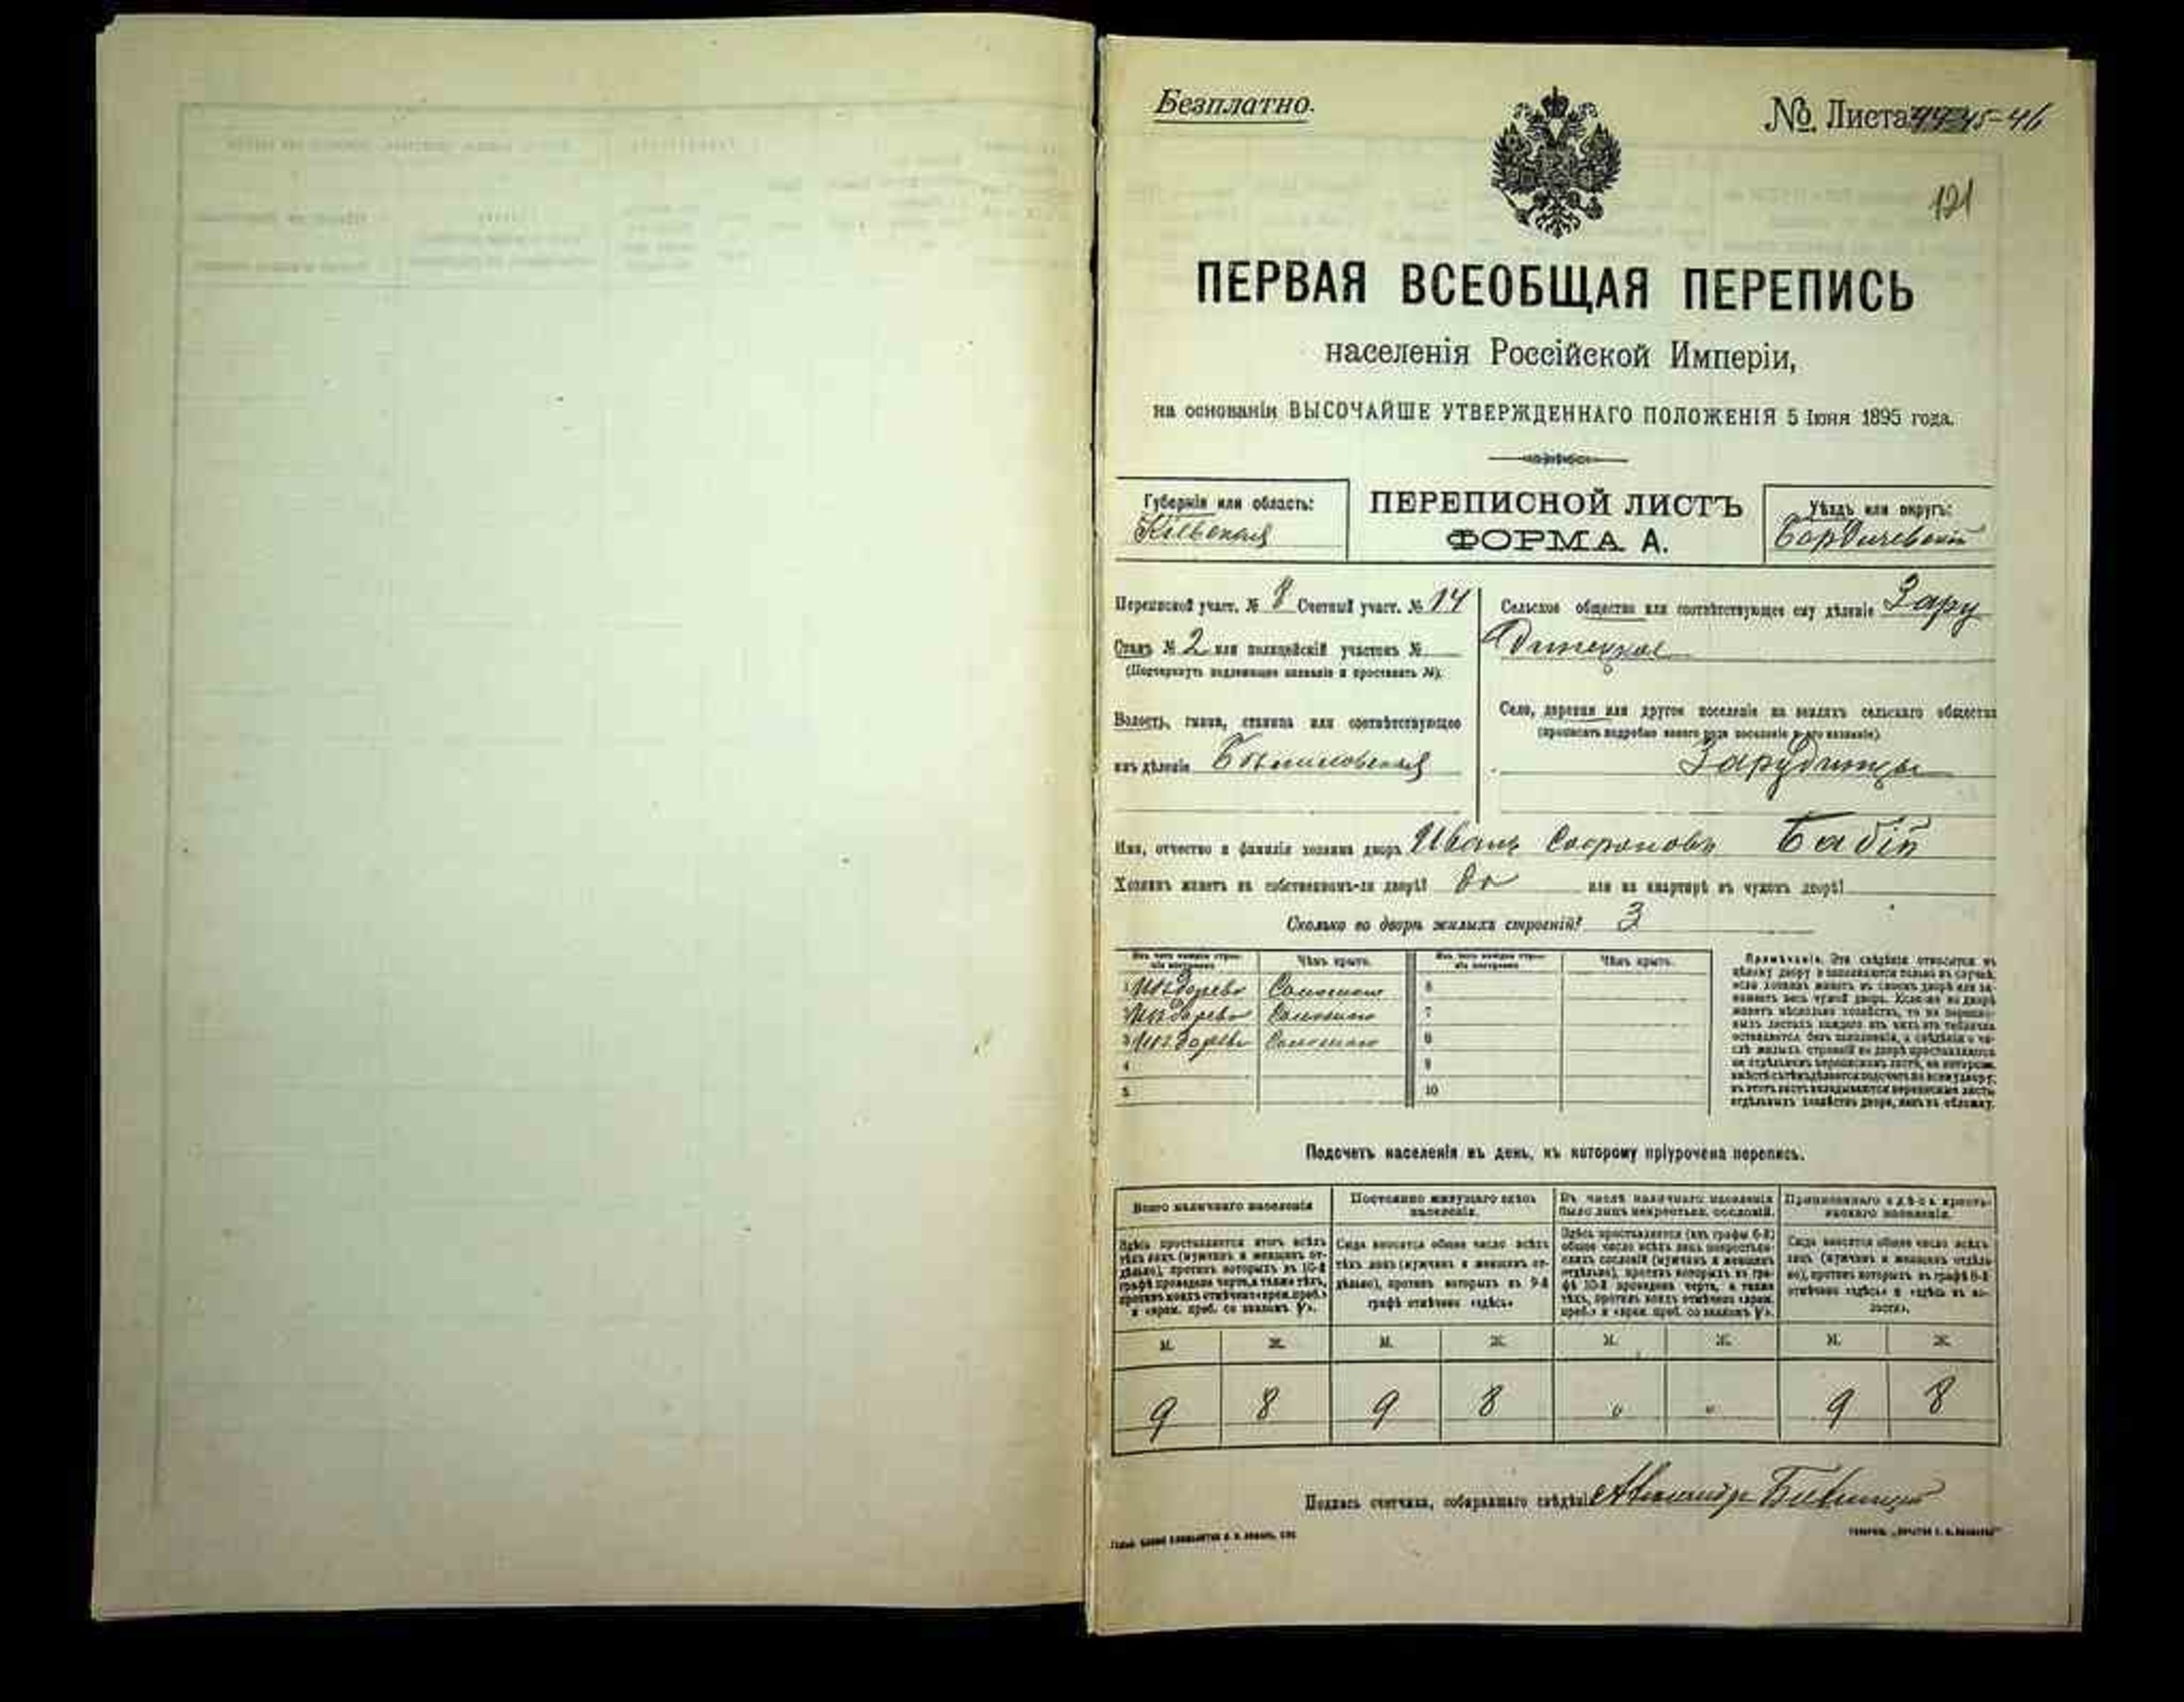 Безплатно.
№ Листа 45-46
121
ПЕРВАЯ ВСЕОБЩАЯ ПЕРЕПИСЬ
населенія Россійской Имперіи,
на основаніи ВЫСОЧАЙШЕ УТВЕРЖДЕННАГО ПОЛОЖЕНІЯ 5 Іюня 1895 года.
Губернія или область:
Кіевская
ПЕРЕПИСНОЙ ЛИСТЪ
ФОРМА А.
Уѣздъ или округъ:
Бердичевскій
Переписной участ. № 8 Счетный участ. № 14
Станъ № 2 или полицейскій участокъ №
(Подчеркнуть подлежащее названіе и проставить №).
Волость, гмина, станица или соотвѣтствующее
имъ дѣленіе
Сельское общество или соотвѣтствующее ему дѣленіе Зару
динецкое
Село, деревня или другое поселеніе на земляхъ сельскаго общества
(прописать подробно какого рода поселеніе и его названіе).
Зарудинцы
Имя, отчество и фамилія хозяина двора Иванъ Софроновъ Бабій
Хозяинъ живетъ въ собственномъ-ли дворѣ? да или на квартирѣ въ чужомъ дворѣ?
Сколько во дворѣ жилыхъ строеній? 3
Изъ чего каждое строеніе построено Чѣмъ крыто. Изъ чего каждое строеніе построено Чѣмъ крыто.
1 Изъ дерево Соломою 6
Изъ дерево Соломою 7
3 Изъ дерево Соломою 8
4 9
5 10
Примѣчаніе. Эти свѣдѣнія относятся къ
цѣлому двору и заполняются только въ случаѣ,
если хозяинъ живетъ въ своемъ дворѣ или за-
нимаетъ весь чужой дворъ. Если-же во дворѣ
живетъ нѣсколько хозяйствъ, то на перепис-
ныхъ листахъ каждаго изъ нихъ эта табличка
оставляется безъ заполненія, а свѣдѣнія о чи-
слѣ жилыхъ строеній во дворѣ проставляются
на отдѣльномъ переписномъ листѣ, на которомъ
вмѣстѣ съ тѣмъ дѣлается подсчетъ по всему двору;
въ этотъ листъ вкладываются переписные листы
отдѣльныхъ хозяйствъ двора, какъ въ обложку.
Подсчетъ населенія въ день, къ которому пріурочена перепись.
Всего наличнаго населенія
Здѣсь проставляется итогъ всѣхъ
тѣхъ лицъ (мужчинъ и женщинъ от-
дѣльно), противъ которыхъ въ 10-й
графѣ проведена черта, а также тѣхъ,
противъ коихъ отмѣчено «врем. преб.»
и «врем. преб. со знакомъ V».
Постоянно живущаго здѣсь
населенія.
Сюда вносится общее число всѣхъ
тѣхъ лицъ (мужчинъ и женщинъ от-
дѣльно), противъ которыхъ въ 9-й
графѣ отмѣчено «здѣсь»
Въ числѣ наличнаго населенія
было лицъ некрестьян. сословій.
Здѣсь проставляется (изъ графы 6-й)
общее число всѣхъ лицъ некрестьян-
скихъ сословій (мужчинъ и женщинъ
отдѣльно), противъ которыхъ въ гра-
фѣ 10-й проведена черта, а также
тѣхъ, противъ коихъ отмѣчено «врем.
преб.» и «врем. преб. со знакомъ V».
Приписаннаго здѣсь кресть-
янскаго населенія.
Сюда вносится общее число всѣхъ
лицъ (мужчинъ и женщинъ отдѣль-
но), противъ которыхъ въ графѣ 8-й
отмѣчено «здѣсь» и «здѣсь въ во-
лости».
М. Ж. М. Ж. М. Ж. М. Ж.
9 8 9 8 " " 9 8
Подпись счетчика, собиравшаго свѣдѣнія Александръ